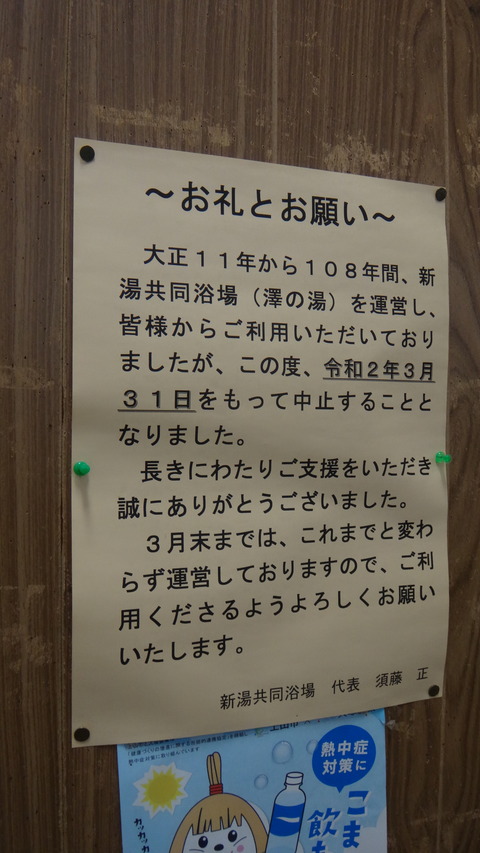 ～お礼とお願い～
大正１１年から１０８年間、新
湯共同浴場（澤の湯）を運営し、
皆様からご利用いただいており
ましたが、この度、令和２年３月
３１日をもって中止することと
なりました。
長きにわたりご支援をいただき
誠にありがとうございました。
３月末までは、これまでと変わ
らず運営しておりますので、ご利
用くださるようよろしくお願い
いたします。
新湯共同浴場　代表　須藤　正
熱中症
対策に
こま
飲